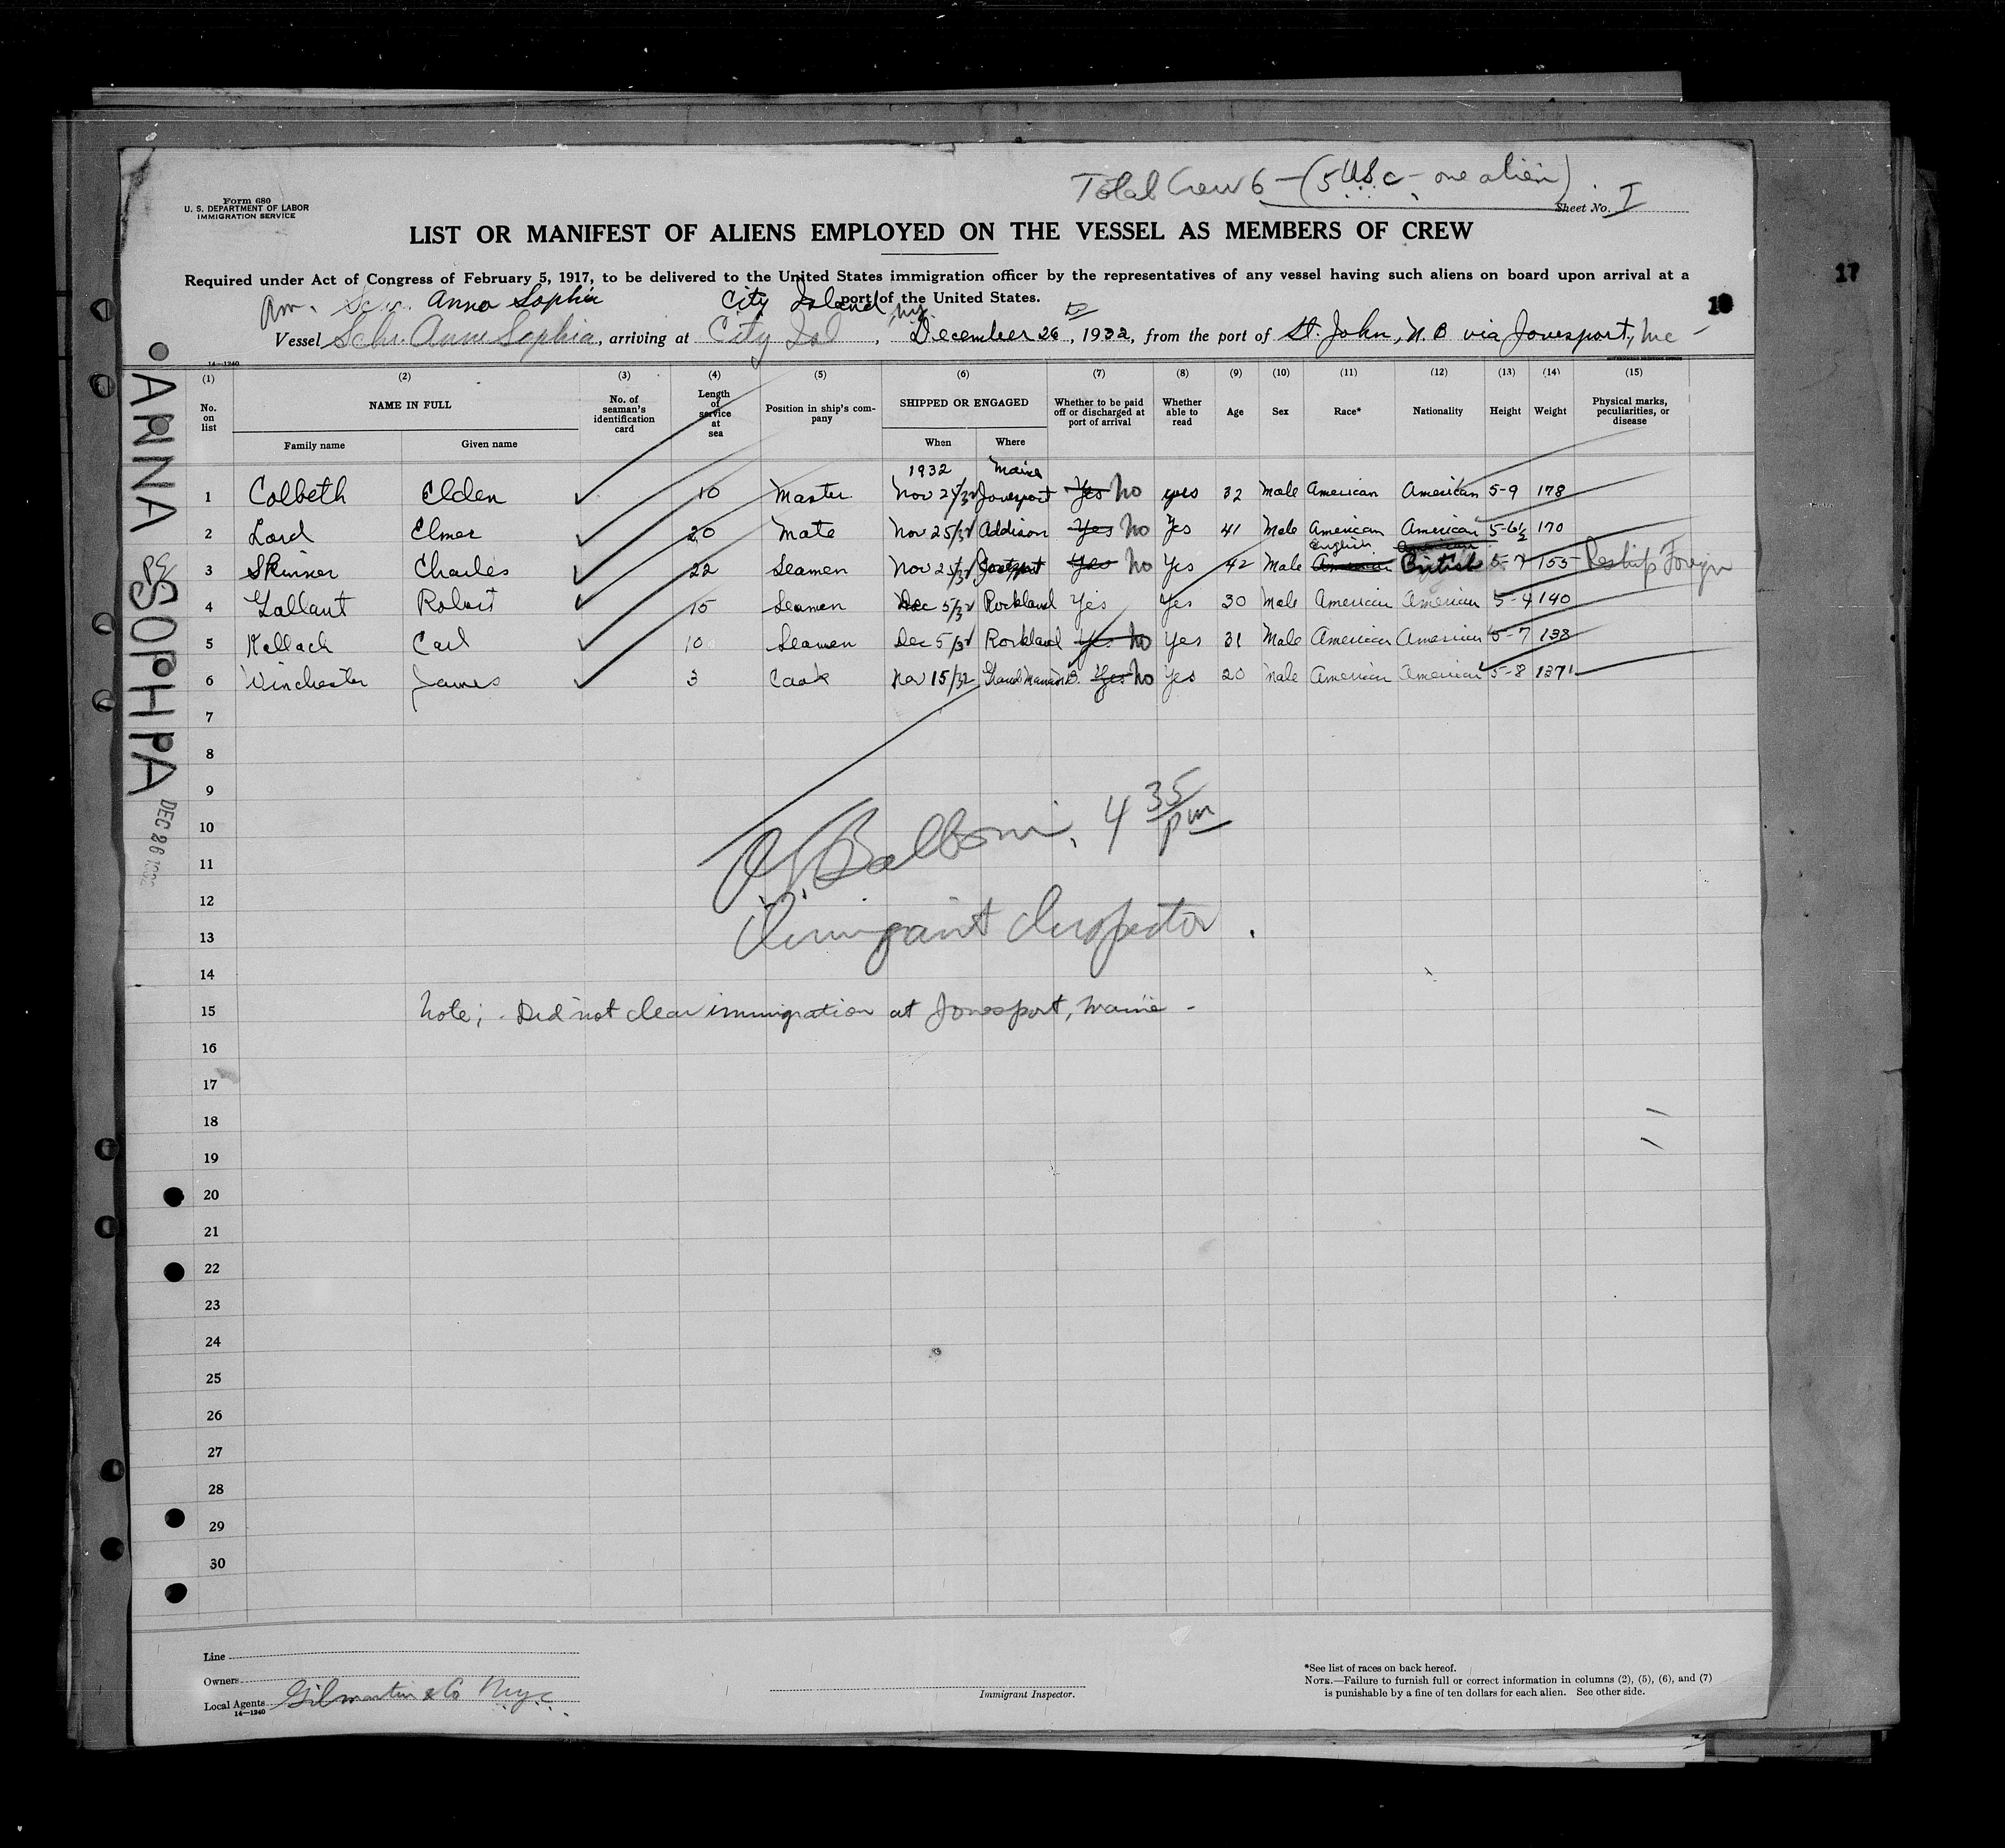 Total Crew 6 - (5 USC - one alien)
Form 680
U. S. DEPARTMENT OF LABOR
IMMIGRATION SERVICE
Sheet No. I
LIST OR MANIFEST OF ALIENS EMPLOYED ON THE VESSEL AS MEMBERS OF CREW
Required under Act of Congress of February 5, 1917, to be delivered to the United States immigration officer by the representatives of any vessel having such aliens on board upon arrival at a
port of the United States.
17
Am. Schr. Anna Sophia City Island, NY.
Vessel Schr. Anna Sophia, arriving at City Isl, December 26, 1932, from the port of St. John, N. B via Jonesport, Me -
14-1240
(1) (2) (3) (4) (5) (6) (7) (8) (9) (10) (11) (12) (13) (14) (15)
No. on list NAME IN FULL No. of seaman's identification card Length of service at sea Position in ship's company SHIPPED OR ENGAGED Whether to be paid off or discharged at port of arrival Whether able to read Age Sex Race* Nationality Height Weight Physical marks, peculiarities, or disease
Family name Given name When Where
1932 Maine
1 Colbeth Elden 10 Master Nov 25/32 Jonesport Yes No yes 32 Male American American 5-9 178
2 Lord Elmer 20 Mate Nov 25/32 Addison Yes No Yes 41 Male American American 5-6½ 170
English American
3 Skinner Charles 22 Seamen Nov 25/32 Yes No Yes 42 Male American British 5-7 155 Reship Foreign
4 Gallant Robert 15 Seamen Dec 5/32 Rockland Yes Yes 30 Male American American 5-4 140
5 Kallach Carl 10 Seamen Dec 5/32 Rockland Yes No Yes 31 Male American American 5-7 138
6 Winchester James 3 Cook Nov 15/32 Grand Manan N.B. Yes No Yes 20 Male American American 5-8 137
7
8
9
10
11
12
13
14
15
16
17
18
19
20
21
22
23
24
25
26
27
28
29
30
Balboni, 4 35/pm
Immigrant Inspector.
Note; - Did not clear immigration at Jonesport, Maine -
ANNA SOPHIA
DEC 26 1932
Line
Owners
Local Agents Gilmartin & Co N.Y.C.
14-1240
Immigrant Inspector.
*See list of races on back hereof.
NOTE.—Failure to furnish full or correct information in columns (2), (5), (6), and (7)
is punishable by a fine of ten dollars for each alien. See other side.